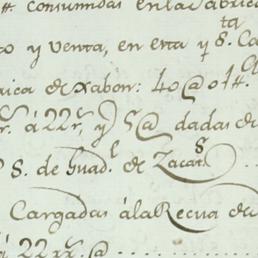 # consumidas en la fabric
to y venta, en esta y S.ta Ca
rica de xabon: 40@01#.
r.s á 22 r.s, y 5@ dadas de
P S. de Guad.e de Zacat.s
Cargadas á la Recua de
á 22 r.s @ . . . . . . . . .